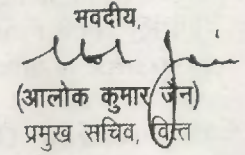 भवदीय,
(आलोक कुमार जैन)
प्रमुख सचिव, वित्त